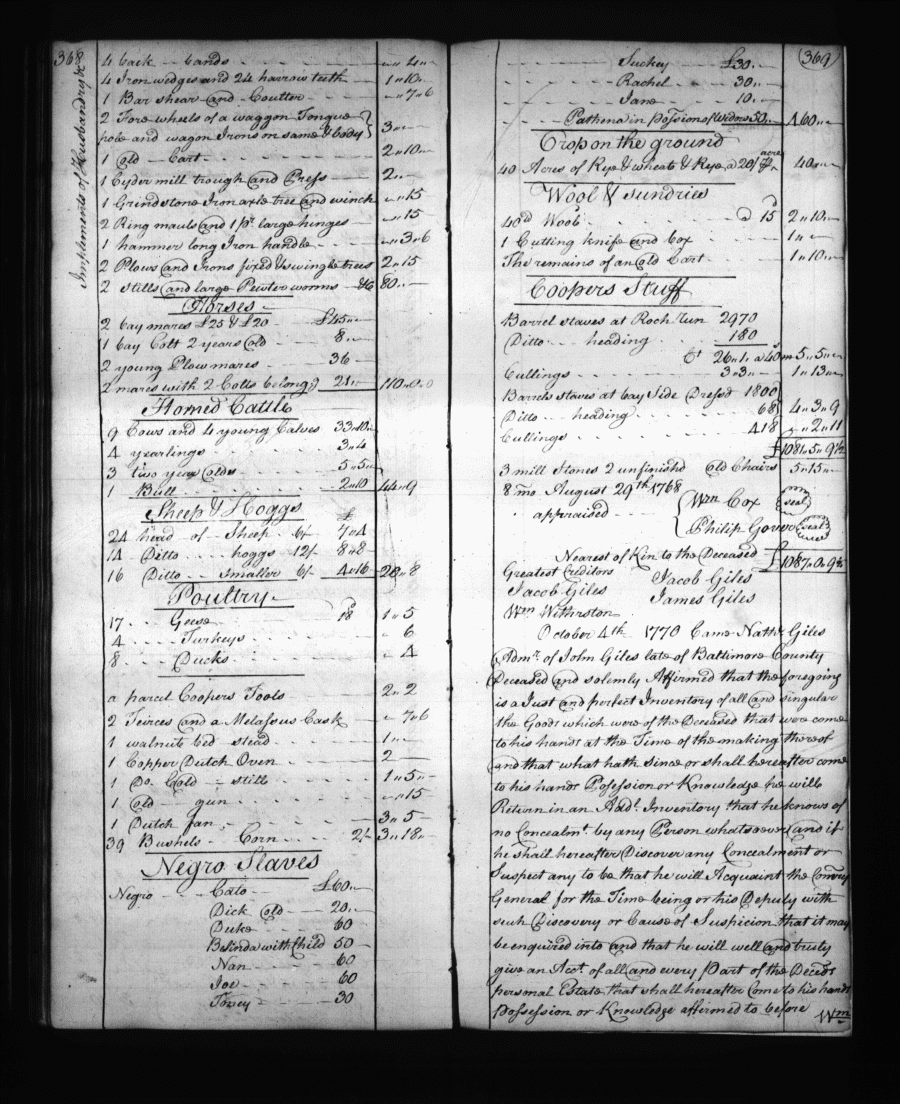 368
Implements of Husbandry &c
4 Back bands - - - - - - " 4 "
4 Iron wedges and 24 harrow teeth - 1 " 10 "
1 Bar shear and Coutter - - - " 7 " 6
2 Fore wheels of a waggon Tongue
pole and wagon Irons on same & body } 3 "
1 Old Cart - - - - - 2 " 10 "
1 Cyder mill trough and Press - 2 "
1 Grindstone Iron axle tree and winch " 15
2 Ring mauls and 1 pr. large hinges - " 15
1 hammer long Iron handle - - " 3 " 6
2 Plows and Irons fixed & swingle trees 2 " 15
2 Stills and large Pewter worms - 80 "
Horses
2 bay mares £25 & £20 - £45 "
1 bay Colt 2 years old - 8 "
2 young Plow mares - - 36 -
2 mares with 2 Colts belongg 21 " 110 " 0 " 0
Horned Cattle
9 Cows and 4 young Calves 33 " 10 "
4 yearlings - - - 3 " 4
3 two year Olds - - 5 " 5 "
1 Bull - - - - 2 " 10 44 " 9
Sheep & Hoggs £
24 head of Sheep 6/- 7 " 4
14 Ditto - - hoggs 12/- 8 " 8
16 Ditto - - Smaller 6/- 4 " 16 20 " 8
Poultry
17 - - Geese - - - - 18d 1 " 5
4 - - - Turkeys - - - - " 6
8 - - - Ducks - - - - " 4
a parcel Coopers Tools - - 2 " 2
2 Teirces and a Melassus Cask - " 7 " 6
1 walnut bed stead - - - 1 "
1 Copper Dutch Oven - - - 2
1 Do. Cold still - - - 1 " 5 "
1 old - gun - - - - " 15
1 Dutch fan - - - - 3 " 5 -
39 Bushels - Corn - - - 2/- 3 " 18 "
Negro Slaves
Negro - - Cato - - £60 "
Dick Old - 20 "
Duke - - 60
Belinda with Child 50 -
Nan - - - 60
Joe - - - 60
30
(369)
Suckey - - £30 "
Rachel - - 30 "
Jane - - 10 "
in possions of Widow 50 " 460 "
Crop on the ground
40 Acres of Rye & wheat & Rye a 20/ pr acre 40 "
Wool & Sundries
40 lb Wool - - - - a 15d 2 " 10 "
1 Cutting knife and box - - 1 " "
The remains of an Old Cart - - 1 " 10 "
Coopers Stuff
Barrel staves at Rock run 2970
Ditto - - heading - - 180
Ct 26 " 1 " a 40 5 " 5 "
Cullings - - - - 3 " 3 " 1 " 13 "
Barrels staves at bay Side Dressd 1800
Ditto - - heading - - - 68 } 4 " 3 " 9
Cullings - - - - 418 " 2 " 11
£1081 " 5 " 9½
3 mill Stones 2 unfinished Old Chairs 5 " 15 "
8 mo August 29th 1768
appraised - - { Wm Cox (seal)
Philip Gover (seal)
Nearest of Kin to the Deceased £1087 " 0 " 9½
Greatest Creditors Jacob Giles
Jacob Giles James Giles
Wm
October 4th 1770 Came Nathl Giles
Admr of John Giles late of Baltimore County
Deceased and solemnly Affirmed that the foregoing
is a Just and perfect Inventory of all and singular
the Goods which were of the Deceased that were come
to his hands at the Time of the making thereof
and that what hath since or shall hereafter come
to his hands Possession or Knowledge he will
Return in an Addl. Inventory that he knows of
no Concealmt. by any Person whatsoever and if
he shall hereafter Discover any Concealment or
Suspect any to be that he will Acquaint the Comsry
General for the Time being or his Deputy with
such Discovery or Cause of Suspicion that it may
be enquired into and that he will well and truly
give an Acct. of all and every Part of the Deceds
personal Estate that shall hereafter come to his hands
Possession or Knowledge affirmed to before
Wm